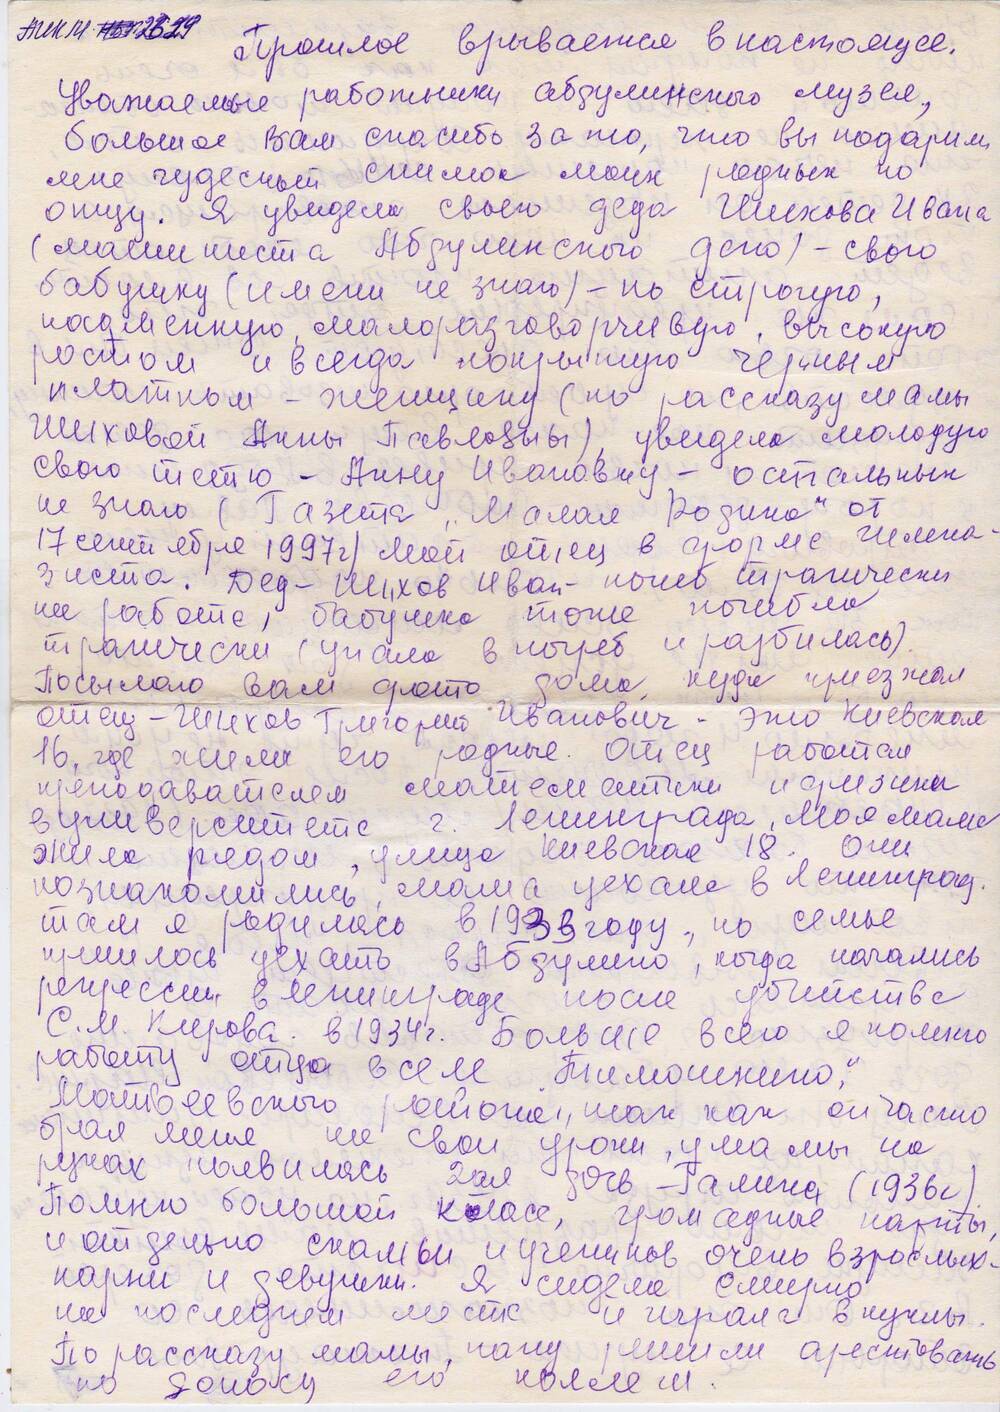 АИКМ 2529
Прошлое врывается в настоящее.
Уважаемые работники абдулинского музея,
большое Вам спасибо за то, что вы подарили
мне чудесный снимок моих родных по
отцу. Я увидела своего деда Шихова Ивана
(машиниста Абдулинского депо) – свою
бабушку (имени не знаю) – но строгую,
надменную, малоразговорчивую, высокую
ростом и всегда покрытую чёрным
платком – женщину (по рассказу мамы
Шиховой Анны Павловны), увидела молодую
свою тётю – Анну Ивановну – остальных
не знаю (Газета „Малая Родина" от
17 сентября 1997г) мой отец в форме гимна-
зиста. Дед – Шихов Иван – погиб трагически
на работе, бабушка тоже погибла
трагически (упала в погреб и разбилась).
Посылаю Вам фото дома, куда приезжал
отец – Шихов Григорий Иванович – это Киевская
16, где жили его родные. Отец работал
преподавателем математики и физики
в университете г. Ленинграда, Моя мама
жила рядом, улица Киевская 18. Они
познакомились, мама уехала в Ленинград.
там я родилась в 1933 году, но семье
пришлось уехать в Абдулино, когда начались
репрессии в Ленинграде после убийства
С.М. Кирова. в 1934г. Больше всего я помню
работу отца в селе „Тимошкино"
Матвеевского района, так как он часто
брал меня на свои уроки, у мамы на
руках появилась 2ая дочь – Галина (1936г)
Помню большой класс, громадные парты,
и отдельно скамьи и учеников очень взрослых –
парни и девушки. Я сидела смирно
на последнем месте и играла в куклы.
По рассказу мамы, папу решили арестовать
по доносу его коллеги.